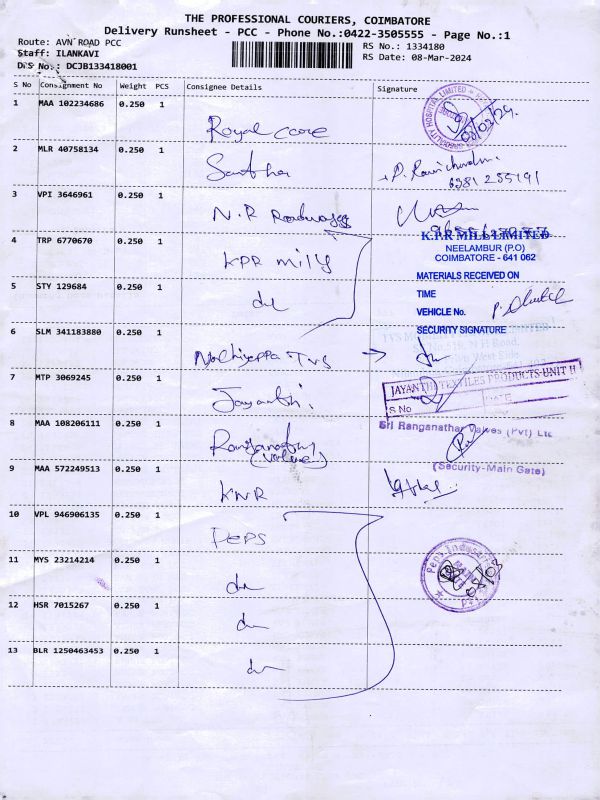 THE PROFESSIONAL COURIERS, COIMBATORE
Delivery Runsheet - PCC - Phone No.:0422-3505555 - Page No.:1
Route: AVN ROAD PCC
RS No.: 1334180
Staff: ILANKAVI
RS Date: 08-Mar-2024
D/S No.: DCJB133418001
S No Consignment No Weight PCS Consignee Details Signature
1 MAA 102234686 0.250 1
Royal care
08/03/24.
2 MLR 40758134 0.250 1
6381 255191
3 VPI 3646961 0.250 1
N.R Roadways
K.P.R MILL LIMITED
NEELAMBUR (P.O)
COIMBATORE - 641 062
4 TRP 6770670 0.250 1
KPR mill
MATERIALS RECEIVED ON
5 STY 129684 0.250 1
TIME
VEHICLE No.
SECURITY SIGNATURE
6 SLM 341183880 0.250 1
TVS
7 MTP 3069245 0.250 1
Jayanthi.
JAYANTHI TEXTILES PRODUCTS-UNIT II
S No DATE
8 MAA 108206111 0.250 1
Ranganathar
(Valve)
Sri Ranganathar Valves (Pvt) Ltd
(Security-Main Gate)
9 MAA 572249513 0.250 1
KNR
10 VPL 946906135 0.250 1
PEPS
11 MYS 23214214 0.250 1
08/03
12 HSR 7015267 0.250 1
13 BLR 1250463453 0.250 1